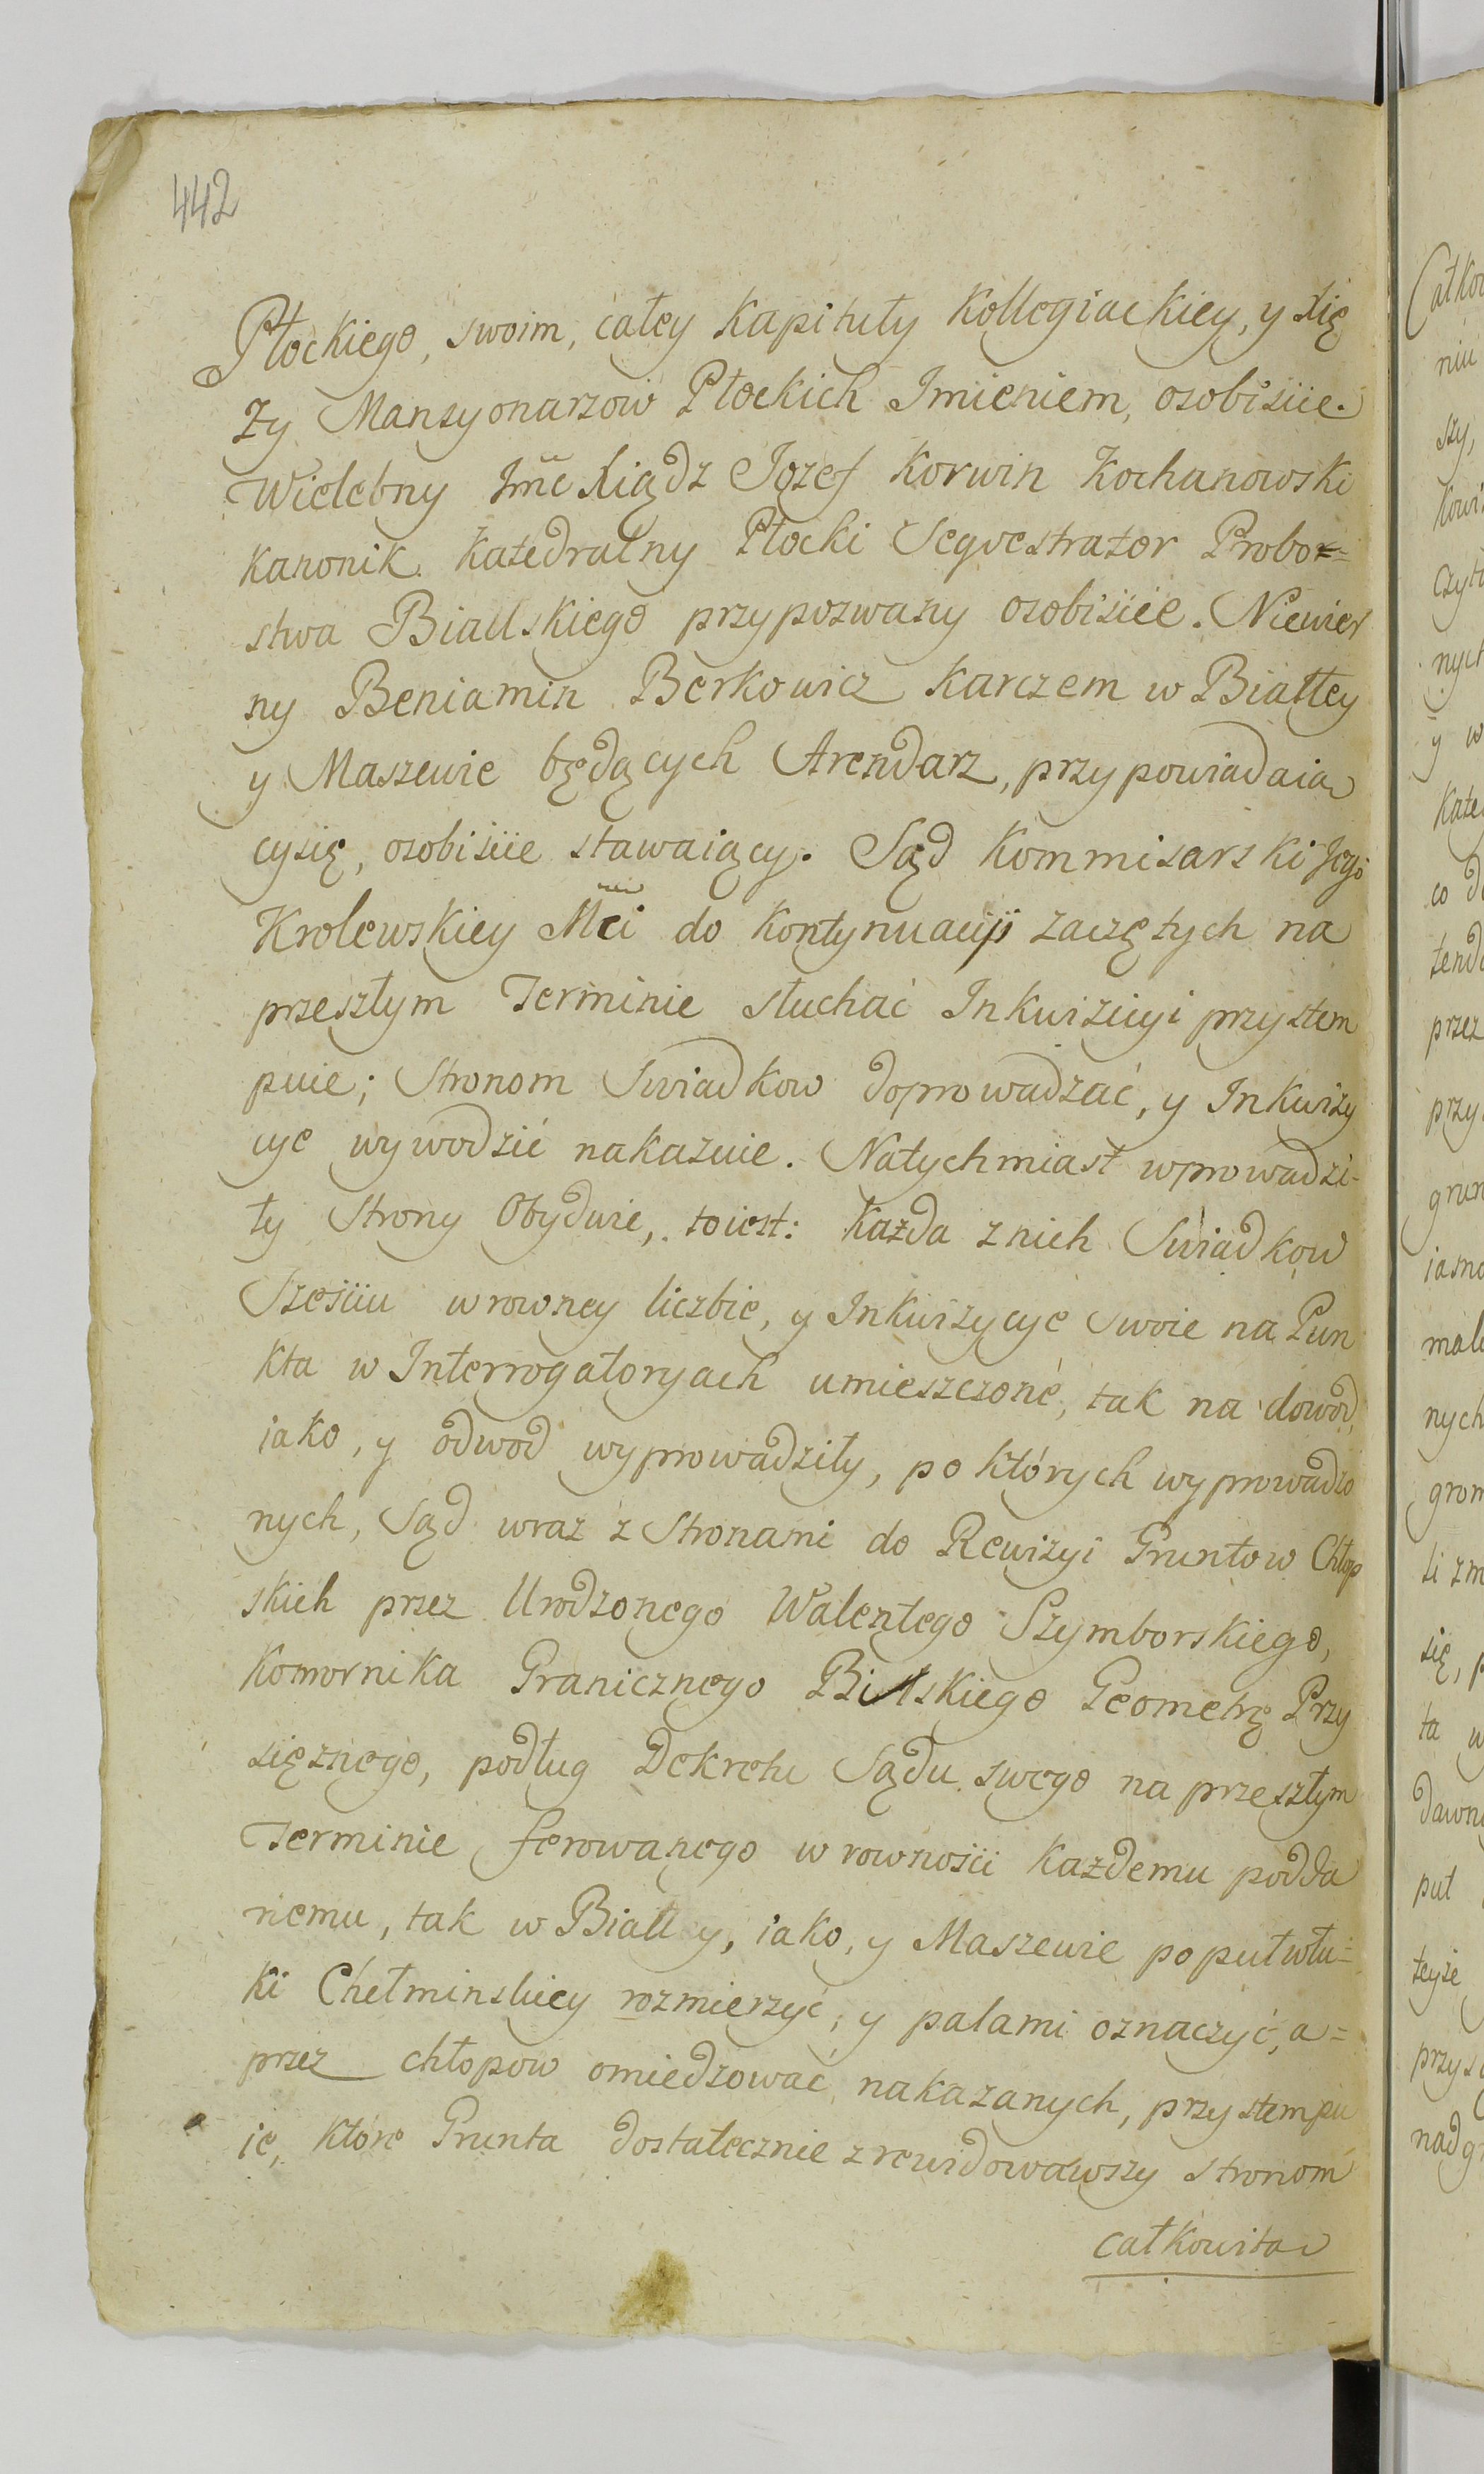 442
Płockiego, swoim, całey Kapituły Kollegiackiey, y Xię
Zy Mansyonarzow Płockich Imieniem, osobiście.
Wielebny Jmć Xiądz Jozef Korwin Kochanowski
Kanonik Katedralny Płocki Seqvestrator Probo=
stwa Bialskiego przypozwany osobiście. Niewier
ny Beniamin Berkowicz Karczem w Białłey
y Maszewie będących Arendarz, przypowiadaią
cysię, osobiście stawaiący. Sąd Kommisarski Jego
Krolewskiey Mci do kontynuacyi zaczętych na
przeszłym Terminie słuchać Inkwizicyi przystem
puie; Stronom Swiadkow doprowadzać, y Inkwizy
cye wywodzić nakazuie. Natychmiast wprowadzi-
ły Strony Obydwie, toiest: Każda znich Swiadkow
Sześciu wrowney liczbie, y Inkwizycye swoie na Pun
kta w Interrogatoryach umieszczone, tak na dowod,
iako, y odwod wyprowadziły, po których wyprowadzo
nych, Sąd wraz z Stronami do Rewizyi Gruntow Chłop
skich przez Urodzonego Walentego Szymborskiego,
Komornika Granicznego Bielskiego Geometrę Przy
sięznego, podług Dekretu Sądu swego na przeszłym
Terminie ferowanego w rowności każdemu podda
nemu, tak w Biall y, iako, y Maszewie po puł włu=
ki Chełminskiey rozmierzyć, y palami oznaczyć, a=
przez chłopow omiedzować nakazanych, przystempu
ie, które Grunta dostatecznie zrewidowawszy stronom
całkowita
Całko
niu
szy,
czyta
nych
y w
Kate
co d
tend
przez
przy
grun
iasno
nych
grom
li zm
się, p
ta w
dawn
puł
teyże
nad g